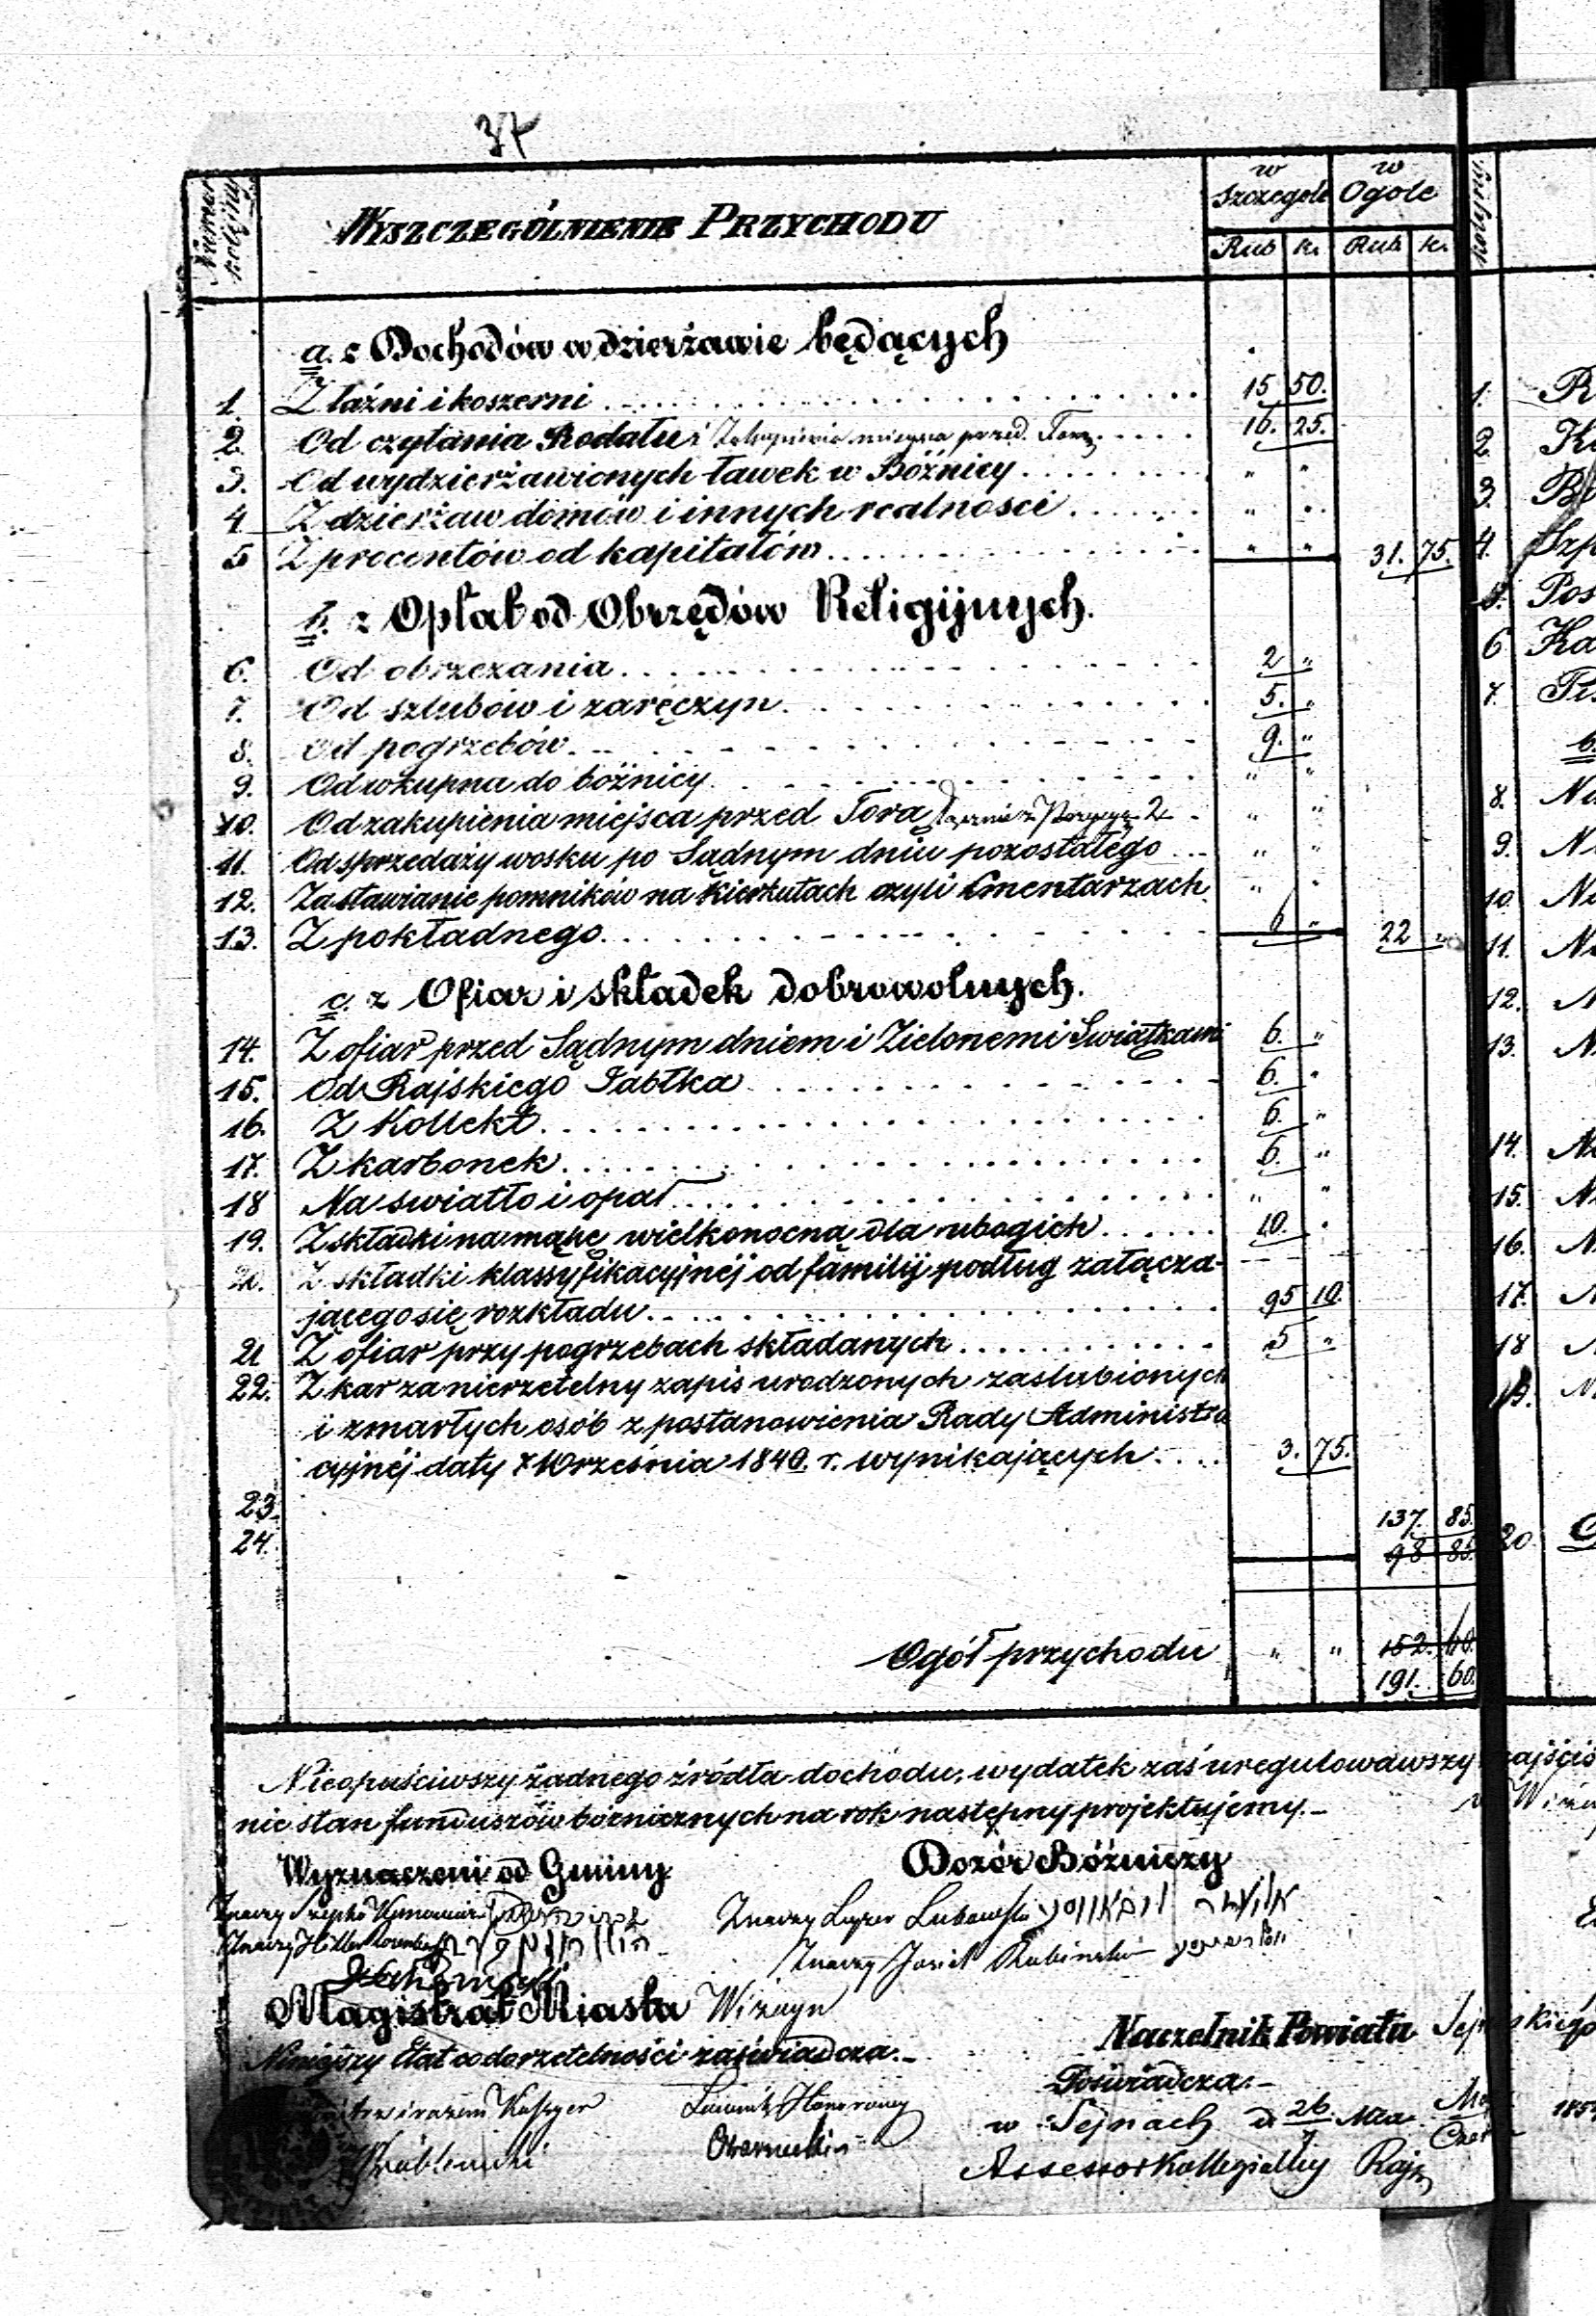 37
Numer kolejny
WYSZCZEGÓLNIENIE PRZYCHODU
w Szczególe
w Ogóle
Rub k. Rub k.
a. z Dochodów w dzierżawie będących
1. Z łaźni i koszerni 15 50.
2. Od czytania Rodału i Zakupienia miejsca przed Torą 16. 25.
3. Od wydzierżawionych ławek w Bóźnicy " "
4 Z dzierżaw domów i innych realnosci " "
5 Z procentów od kapitałów " " 31. 75.
b. z Opłat od Obrzędów Religijnych.
6. Od obrzezania 2 "
7. Od szlubów i zaręczyn 5. "
8. Od pogrzebów 9. "
9. Od wkupna do bóźnicy " "
10. Od zakupienia miejsca przed Torą " "
11. Od sprzedaży wosku po Sądnym dniu pozostałego " "
12. Za stawianie pomników na Kierkutach czyli Cmentarzach " "
13. Z pokładnego 6 " 22 "
c. z Ofiar i składek dobrowolnych.
14. Z ofiar przed Sądnym dniem i Zielonemi Swiątkami 6. "
15. Od Rajskiego Jabłka 6. "
16. Z Kollekt 6. "
17. Z karbonek 6. "
18 Na swiatło i opał " "
19. Z składki na mąkę wielkonocną dla ubogich 10. "
20. Z składki klassyfikacyjnéj od familij podług załącza-
jącego się rozkładu 95 10.
21 Z ofiar przy pogrzebach składanych 5 "
22. Z kar za nierzetelny zapis urodzonych zaslubionych
i zmarłych osób z postanowienia Rady Administra
cyjnéj daty 7 Września 1840. r. wynikających 3. 75.
23.
137. 85.
24.
98 85.
Ogół przychodu " " 152. 60.
191. 60.
Nieopuściwszy żadnego źródła dochodu, wydatek zaś uregulowawszy najściś
nie stan funduszów bóżniczych na rok następny projektujemy.–
Wyznaczeni od Gminy
Dozór Bóźniczy
Znaczy Leyzer Lubowski
Znaczy Josiel Rubinski
Magistrat Miasta Wizayn
Niniejszy Etat co do rzetelności zaświadcza.–
Naczelnik Powiatu Sejneńskiego
Poświadcza.–
w Sejnach d. 26/7 Mca
Assessor Kollegialny
1.
2.
3.
4.
5.
6
7.
b.
8.
9.
10.
11.
12.
13.
14.
15.
16.
17.
18
19.
20